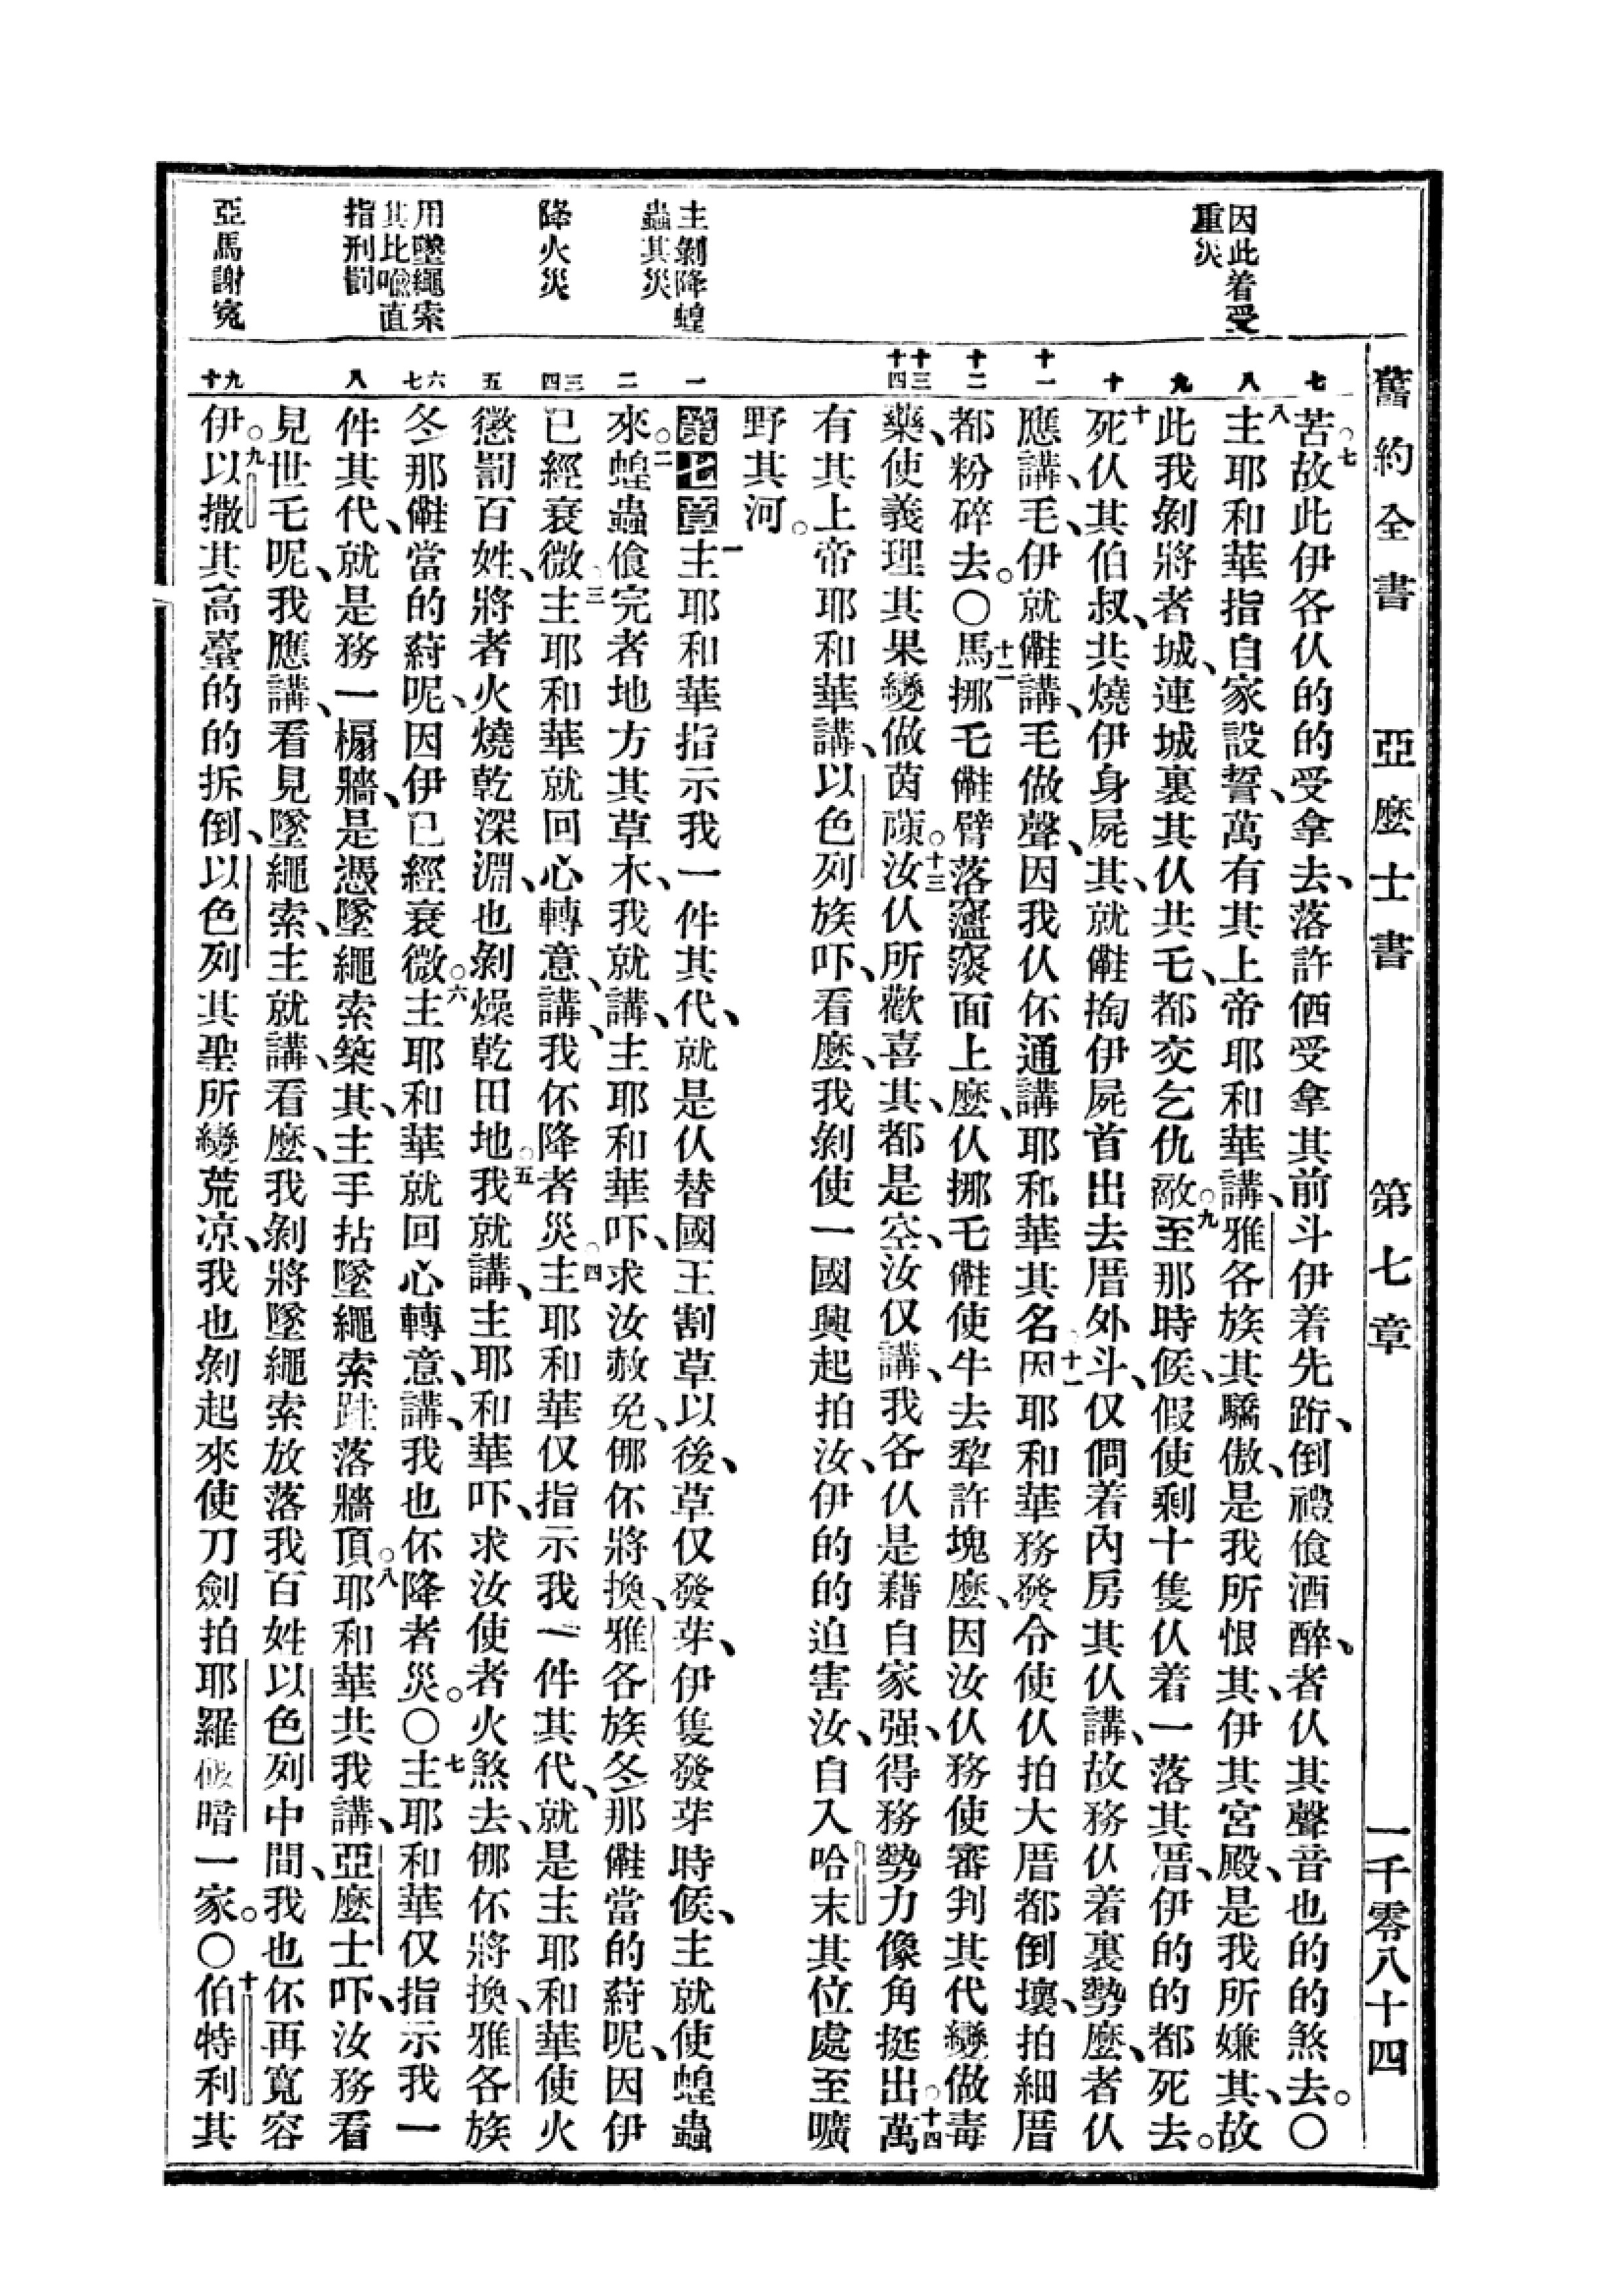 舊約全書 亞麼士書 第七章 一千零八十四
因此着受
重災
主剝降蝗
蟲其災
降火災
用墜繩索
其比喻直
指刑罰
亞馬謝冤
七 八 九 十 十一 十二 十三 十四 一 二 三 四 五 六 七 八 九 十
苦。七故此伊各仈的的受拿去、落許㑚受拿其前斗伊着先跨、倒禮飡酒醉、者仈其聲音也的的煞去。〇
八主耶和華指自家設誓、萬有其上帝耶和華講、雅各族其驕傲、是我所恨其、伊其宮殿、是我所嫌其、故
此我剝將者城、連城裏其仈共毛、都交乞仇敵。九至那時候、假使剩十隻仈着一落其厝、伊的的都死去。
十死仈其伯叔、共燒伊身屍其、就㒕掏伊屍首出去厝外斗、仅倜着內房其仈講、故務仈着裏勢麼、者仈
應講、毛、伊就㒕講、毛做聲、因我仈伓通講耶和華其名。十一因耶和華務發令使仈拍大厝都倒壞、拍細厝
都粉碎去。〇十二馬挪乇㒕臂落面上麼、仈挪乇㒕使牛去犂許塊麼、因汝仈務使審判其代變做毒
藥、使義理其果變做茵蔯。十三汝仈所歡喜其、都是空、汝仅講、我各仈是藉自家强、得務勢力像角挺出。十四萬
有其上帝耶和華講、以色列族吓、看麼、我剝使一國興起拍汝、伊的的迫害汝、自入哈末其位處至曠
野其河。
第七章 一主耶和華指示我一件其代、就是仈替國王割草以後、草仅發芽、伊隻發芽時候、主就使蝗蟲
來。二蝗蟲飡完者地方其草木、我就講、主耶和華吓、求汝赦免、倻伓將換、雅各族冬那㒕當的䓁呢、因伊
已經衰微。三主耶和華就回心轉意、講、我伓降者災。四主耶和華仅指示我一件其代、就是主耶和華使火
懲罰百姓、將者火燒乾深淵、也剝燥乾田地。五我就講、主耶和華吓、求汝使者火煞去、倻伓將換、雅各族
冬那㒕當的䓁呢、因伊已經衰微。六主耶和華就回心轉意、講、我也伓降者災。〇七主耶和華仅指示我一
件其代、就是務一槅牆、是憑墜繩索築其、主手拈墜繩索跬落牆頂。八耶和華共我講、亞麼士吓、汝務看
見世乇呢、我應講、看見墜繩索、主就講、看麼、我剝將墜繩索放落我百姓以色列中間、我也伓再寬容
伊。九以撒其高臺的的拆倒、以色列其聖所變荒凉、我也剝起來使刀劍拍耶羅暗一家。〇十伯特利其